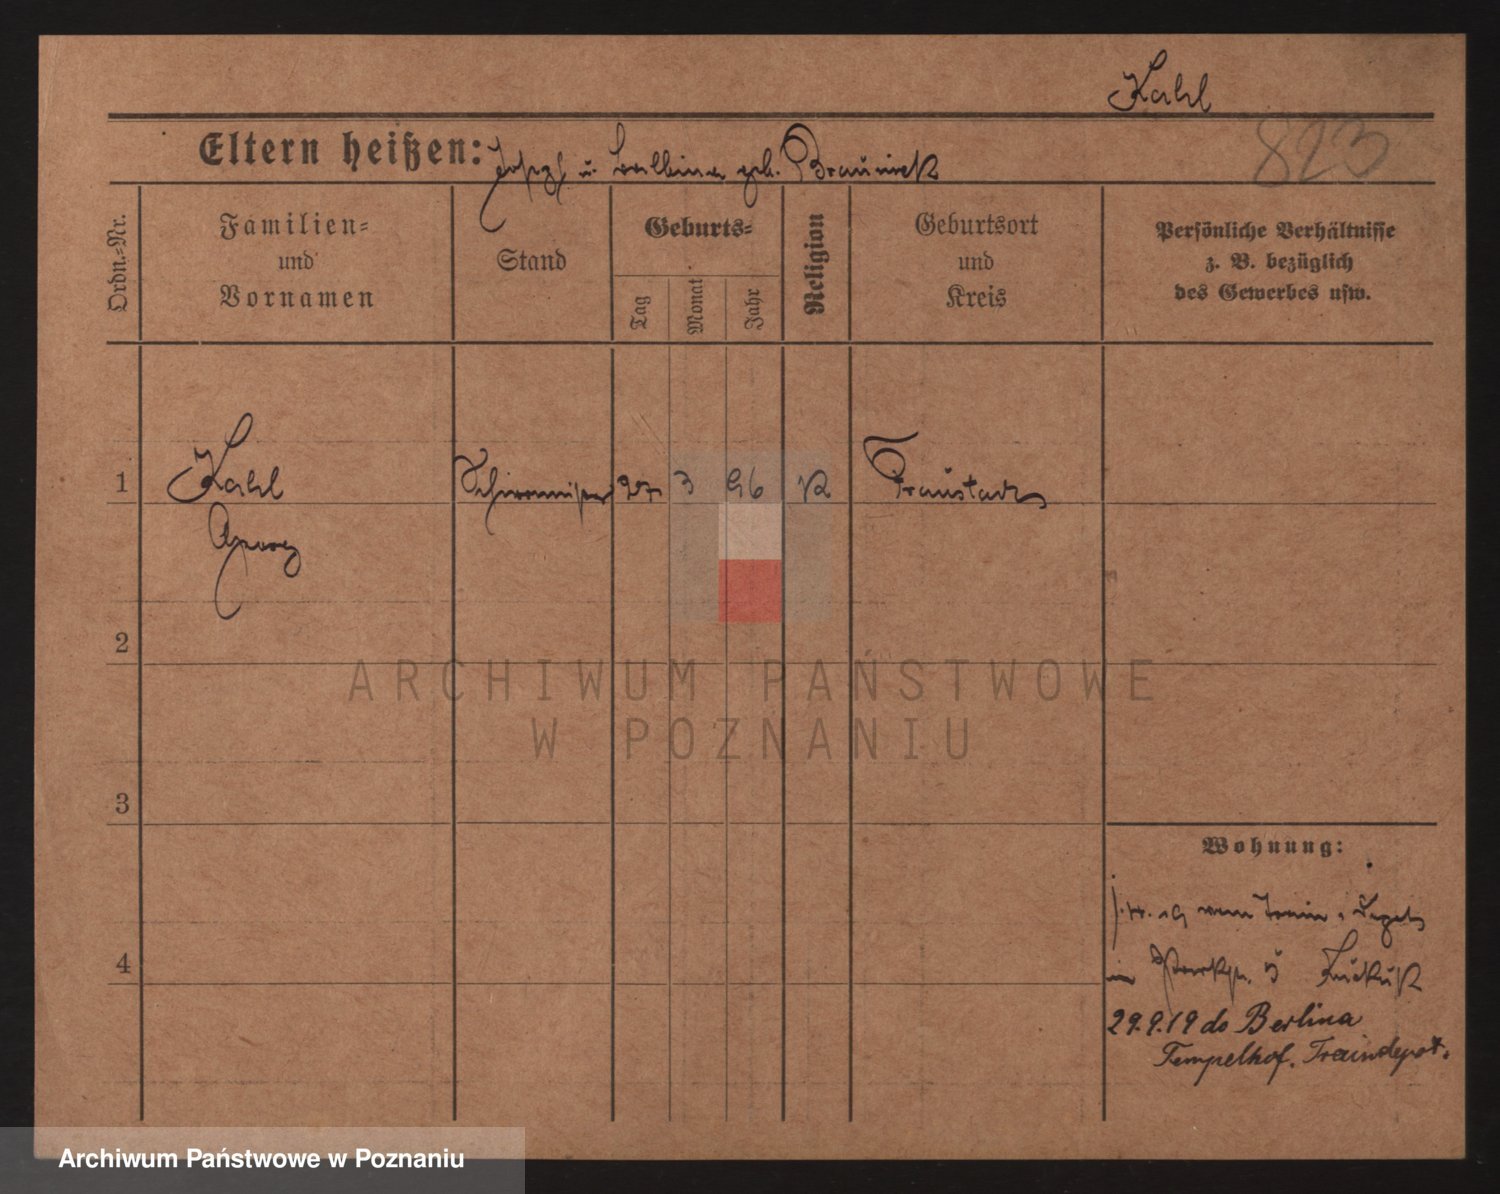 Kahl
Eltern heißen: Josef u. Balbina geb. Brauniek
823
Ordn.=Nr.
Familien=
und
Vornamen
Stand
Geburts=
Tag
Monat
Jahr
Religion
Geburtsort
und
Kreis
Persönliche Verhältnisse
z. B. bezüglich
des Gewerbes usw.
1
Kahl
Schirrmeister
27
3
96
K
Fraustadt
2
3
4
Wohnung:
29.9.19 do Berlina
Tempelhof. Traindepot.
ARCHIWUM PAŃSTWOWE
W POZNANIU
Archiwum Państwowe w Poznaniu